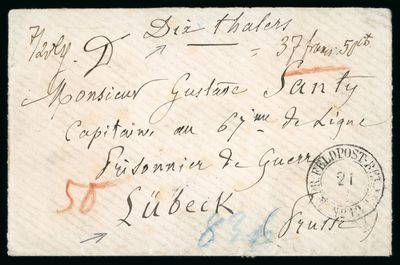 Dix thalers
= 37 francs 50 ct
Monsieur Gustave Santy
Capitaine au 67ème de Ligne
Prisonnier de Guerre
50
Lübeck
Prusse
K. PR. FELDPOST-RELAIS
21
No 19